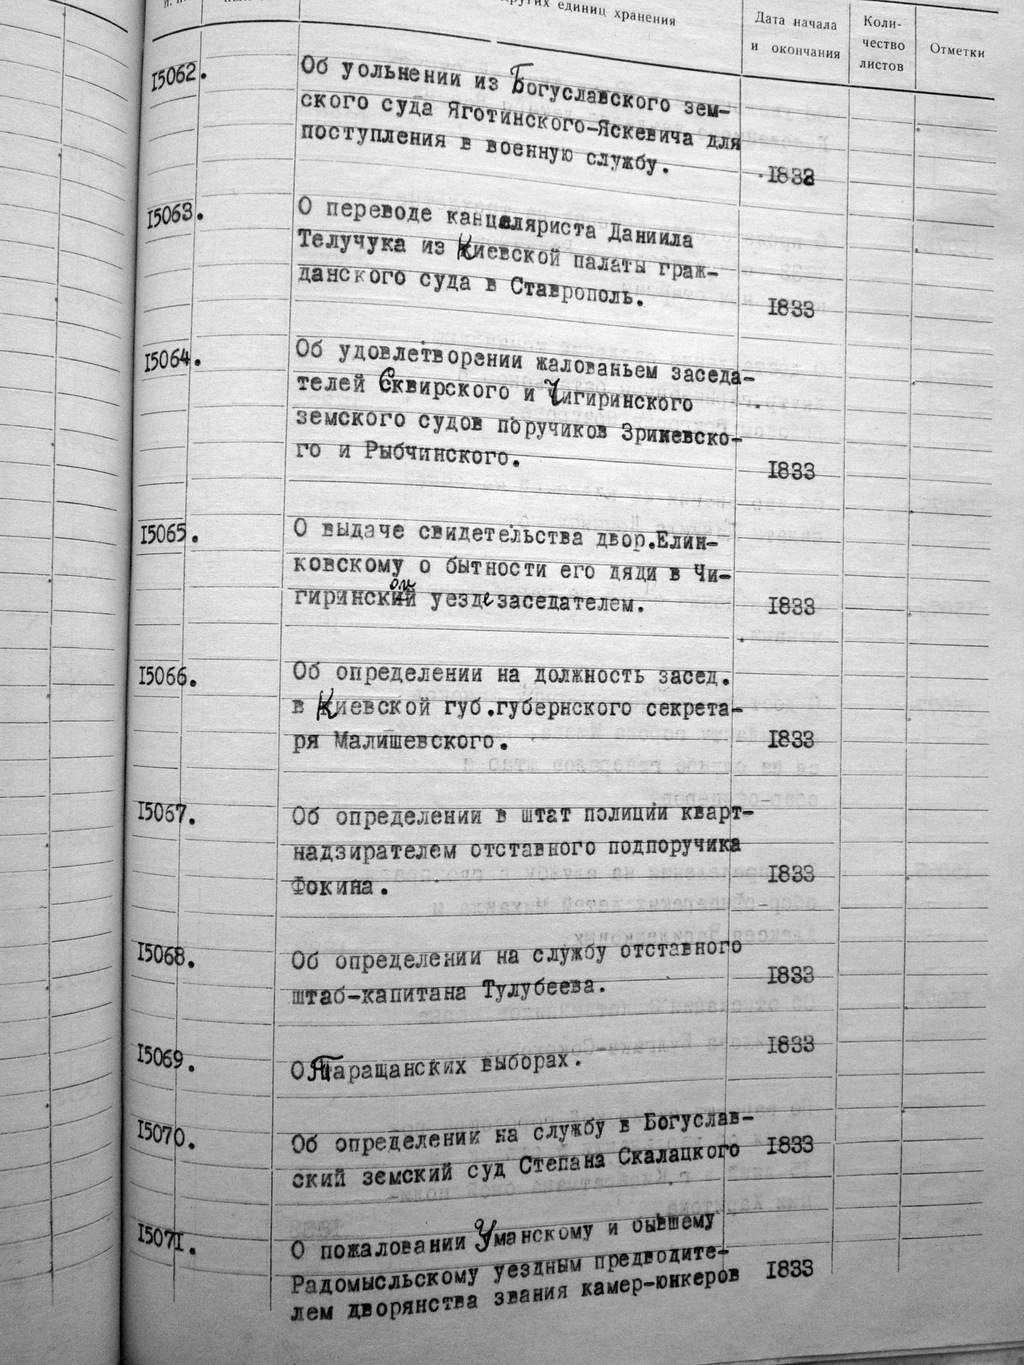 других единиц хранения
Дата начала
и окончания
Коли-
чество
листов
Отметки
15062.
Об уольнении из Богуславского зем-
ского суда Яготинского-Яскевича для
поступления в военную службу.
1833
15063.
О переводе канцеляриста Даниила
Телучука из Киевской палаты граж-
данского суда в Ставрополь.
1833
15064.
Об удовлетворении жалованьем заседа-
телей Сквирского и Чигиринского
земского судов поручиков Зржевско-
го и Рыбчинского.
1833
15065.
О выдаче свидетельства двор.Елин-
ковскому о бытности его дяди в Чи-
гиринском уезде заседателем.
1833
15066.
Об определении на должность засед.
в Киевской губ.губернского секрета-
ря Малишевского.
1833
15067.
Об определении в штат полиции кварт-
надзирателем отставного подпоручика
Фокина.
1833
15068.
Об определении на службу отставного
штаб-капитана Тулубеева.
1833
15069.
О Таращанских выборах.
1833
15070.
Об определении на службу в Богуслав-
ский земский суд Степана Скалацкого
1833
15071.
О пожаловании Уманскому и бывшему
Радомысльскому уездным предводите-
лем дворянства звания камер-юнкеров
1833